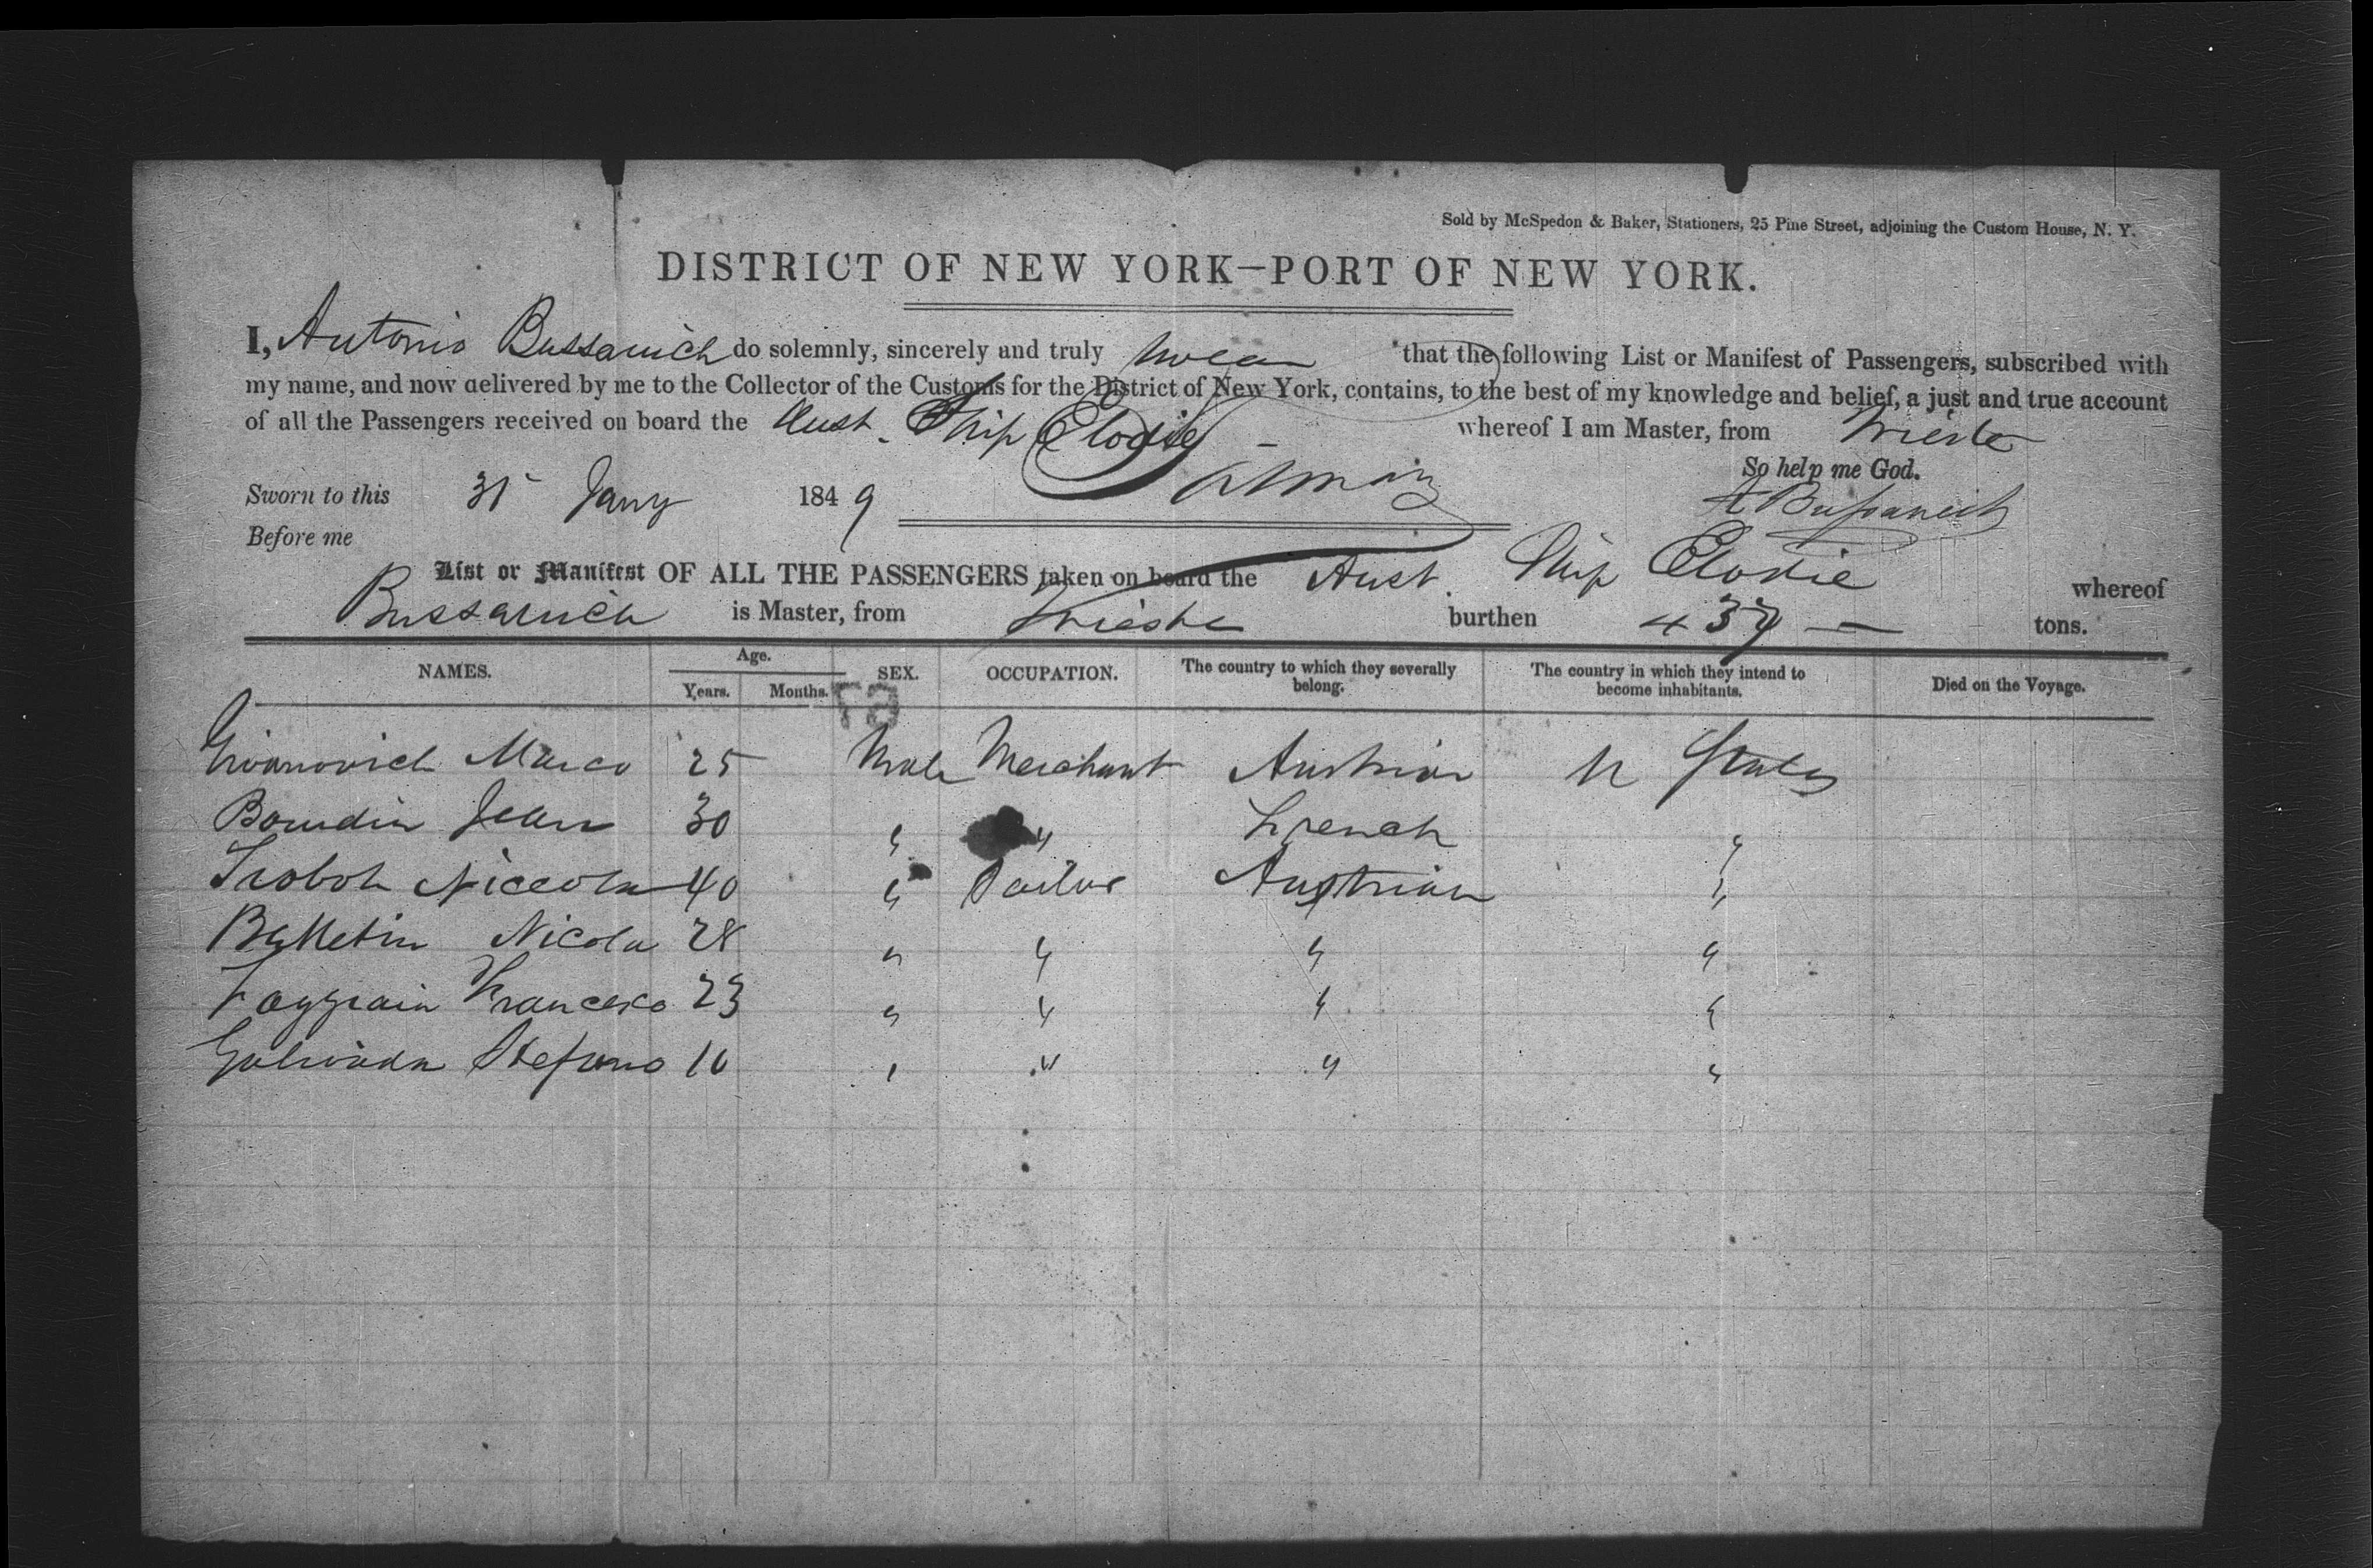 Sold by McSpedon & Baker, Stationers, 25 Pine Street, adjoining the Custom House, N. Y.
DISTRICT OF NEW YORK—PORT OF NEW YORK.
I, Antonio Bussanich do solemnly, sincerely and truly swear that the following List or Manifest of Passengers, subscribed with
my name, and now delivered by me to the Collector of the Customs for the District of New York, contains, to the best of my knowledge and belief, a just and true account
of all the Passengers received on board the Aust. Ship Elodie whereof I am Master, from Trieste
So help me God.
Sworn to this 31 Jany 1849 A Bussanich
Before me
List or Manifest OF ALL THE PASSENGERS taken on board the Aust. Ship Elodie whereof
Bussanich is Master, from Trieste burthen 437 — tons.
NAMES. Age. Years. Months. SEX. OCCUPATION. The country to which they severally belong. The country in which they intend to become inhabitants. Died on the Voyage.
Marco 25 Male Merchant Austrian U States
Bourdin Jean 30 " " French "
Niccola 40 " Sailor Austrian "
Nicola 28 " " " "
Francesco 23 " " " "
Stefano " " " "